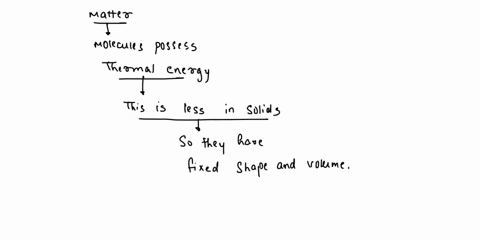 Matter
Molecules possess
Thermal energy
This is less in solids
So they have
fixed shape and volume.